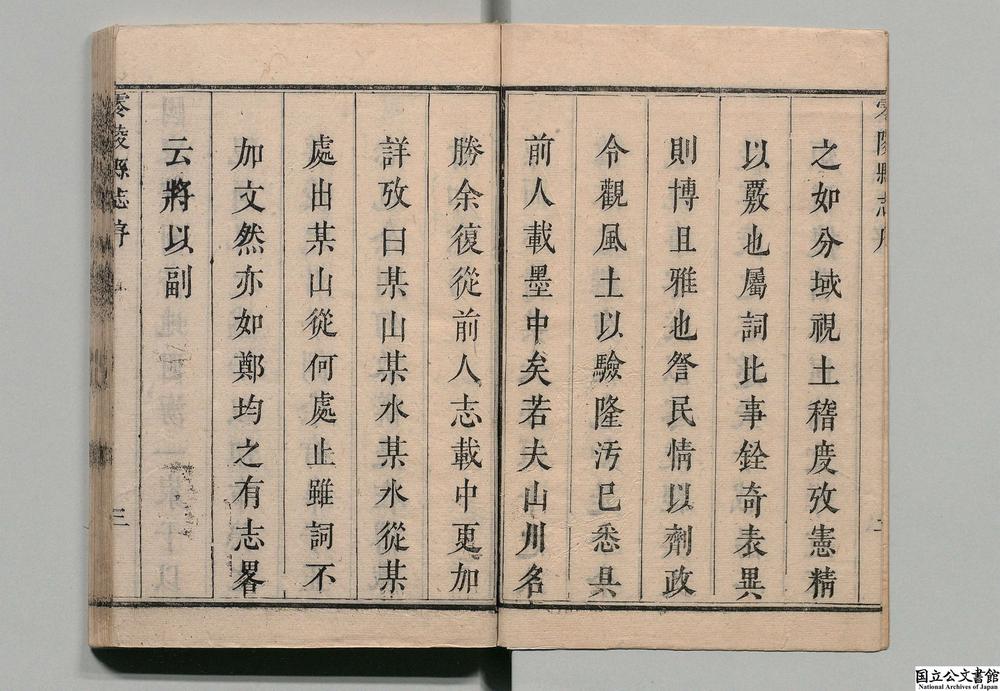 零陵縣志序
之如分域視土稽度攷憲精
以覈也屬詞比事銓奇表異
則博且雅也詧民情以劑政
令觀風土以驗隆汚巳悉具
前人載墨中矣若夫山川名
二
勝余復從前人志載中更加
詳攷曰某山某水某水從某
處出某山從何處止雖詞不
加文然亦如鄭均之有志畧
云將以副
零陵縣志序
三
国立公文書館
National Archives of Japan